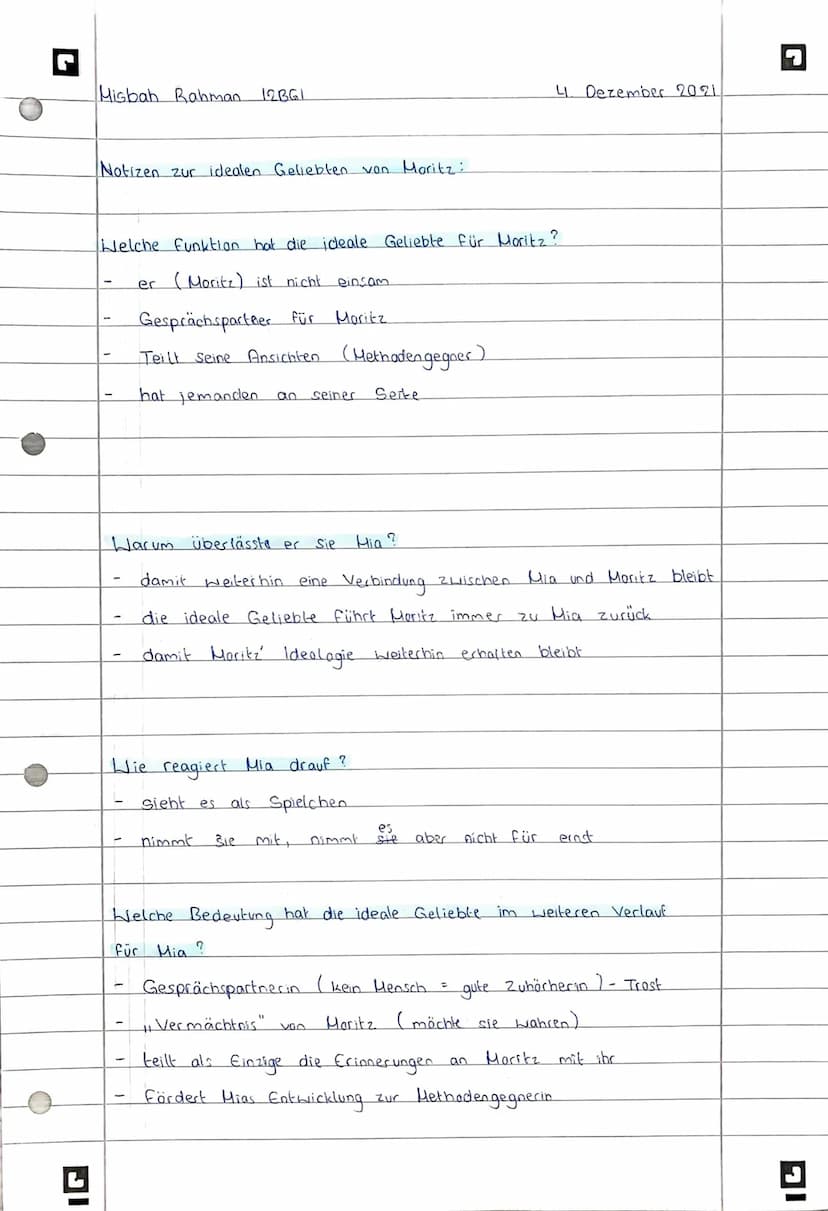 Misbah Rahman 12BG1 4. Dezember 2021
Notizen zur idealen Geliebten von Moritz:
Welche Funktion hat die ideale Geliebte für Moritz?
- er (Moritz) ist nicht einsam
- Gesprächsparteer für Moritz
- Teilt seine Ansichten (Methodengegner)
- hat jemanden an seiner Seite
Warum überlässte er sie Mia?
- damit weiterhin eine Verbindung zwischen Mia und Moritz bleibt
- die ideale Geliebte führt Moritz immer zu Mia zurück
- damit Moritz' Ideologie weiterhin erhalten bleibt
Wie reagiert Mia drauf?
- sieht es als Spielchen
- nimmt sie mit, nimmt sie es aber nicht für ernst
Welche Bedeutung hat die ideale Geliebte im weiteren Verlauf
für Mia?
- Gesprächspartnerin (kein Mensch = gute Zuhörherin) - Trost
- „Vermächtnis" von Moritz (möchte sie wahren)
- teilt als Einzige die Erinnerungen an Moritz mit ihr
- Fördert Mias Entwicklung zur Methodengegnerin